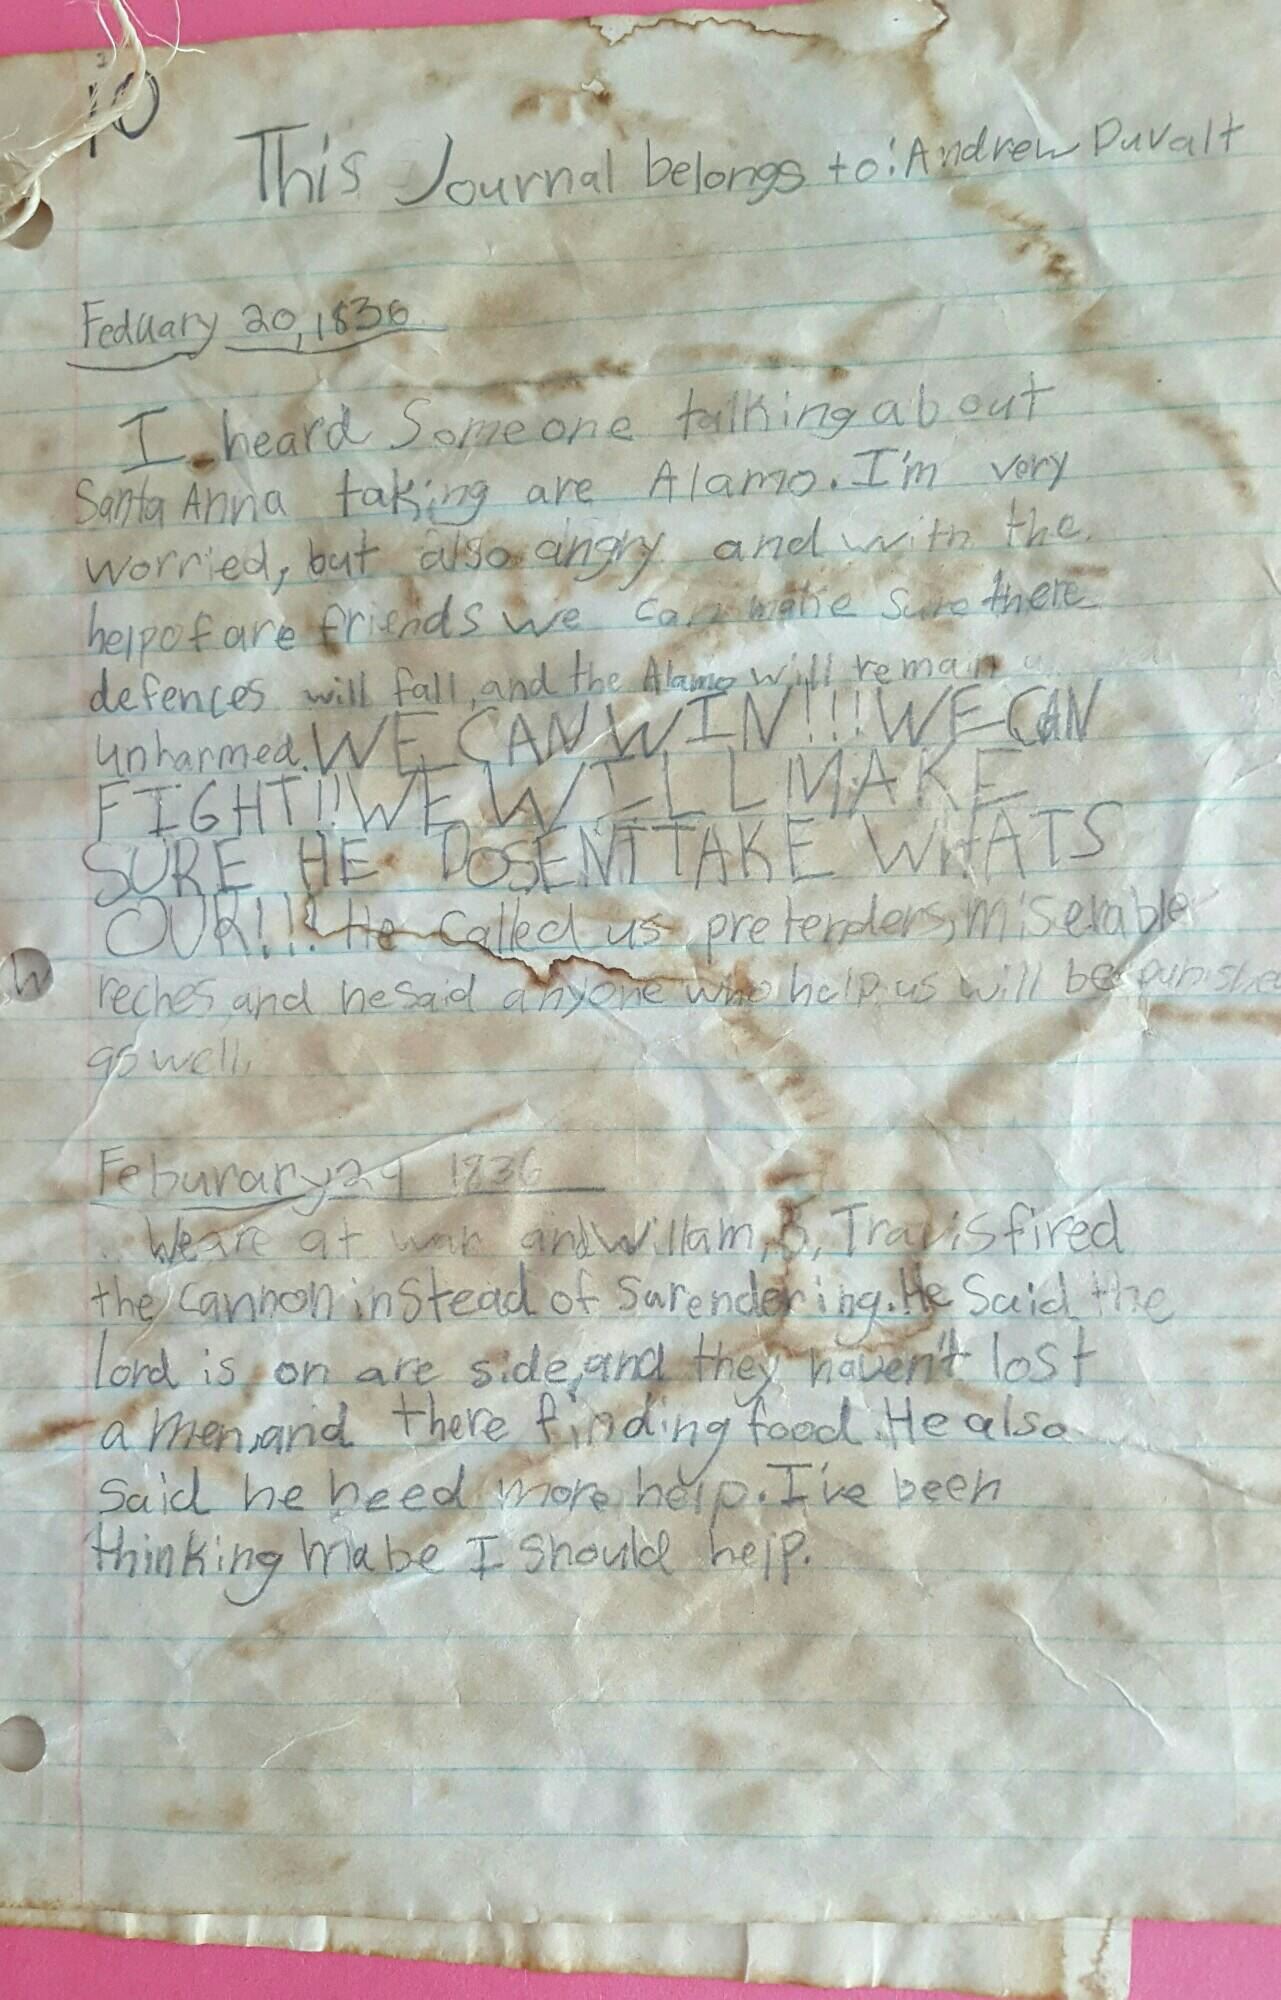 10
This Journal belongs to: Andrew Duvalt
Feduary 20, 1836
I heard Someone talking about
Santa Anna taking are Alamo. I'm very
worried, but also angry and with the
help of are friends we can make sure there
defences will fall, and the Alamo will remain
unharmed. WE CAN WIN!!! WE CAN
FIGHT!! WE WILL MAKE
SURE HE DOSENT TAKE WHATS
OUR!!! He called us pretenders, miserable
reches, and he said anyone who help us will be punished
as well.
Feburary 29 1836
We are at war and Willam, B, Travis fired
the cannon instead of Surendering. He Said the
lord is on are side, and they haven't lost
a men, and there finding food. He also
said he need more help. I've been
thinking mabe I should help.